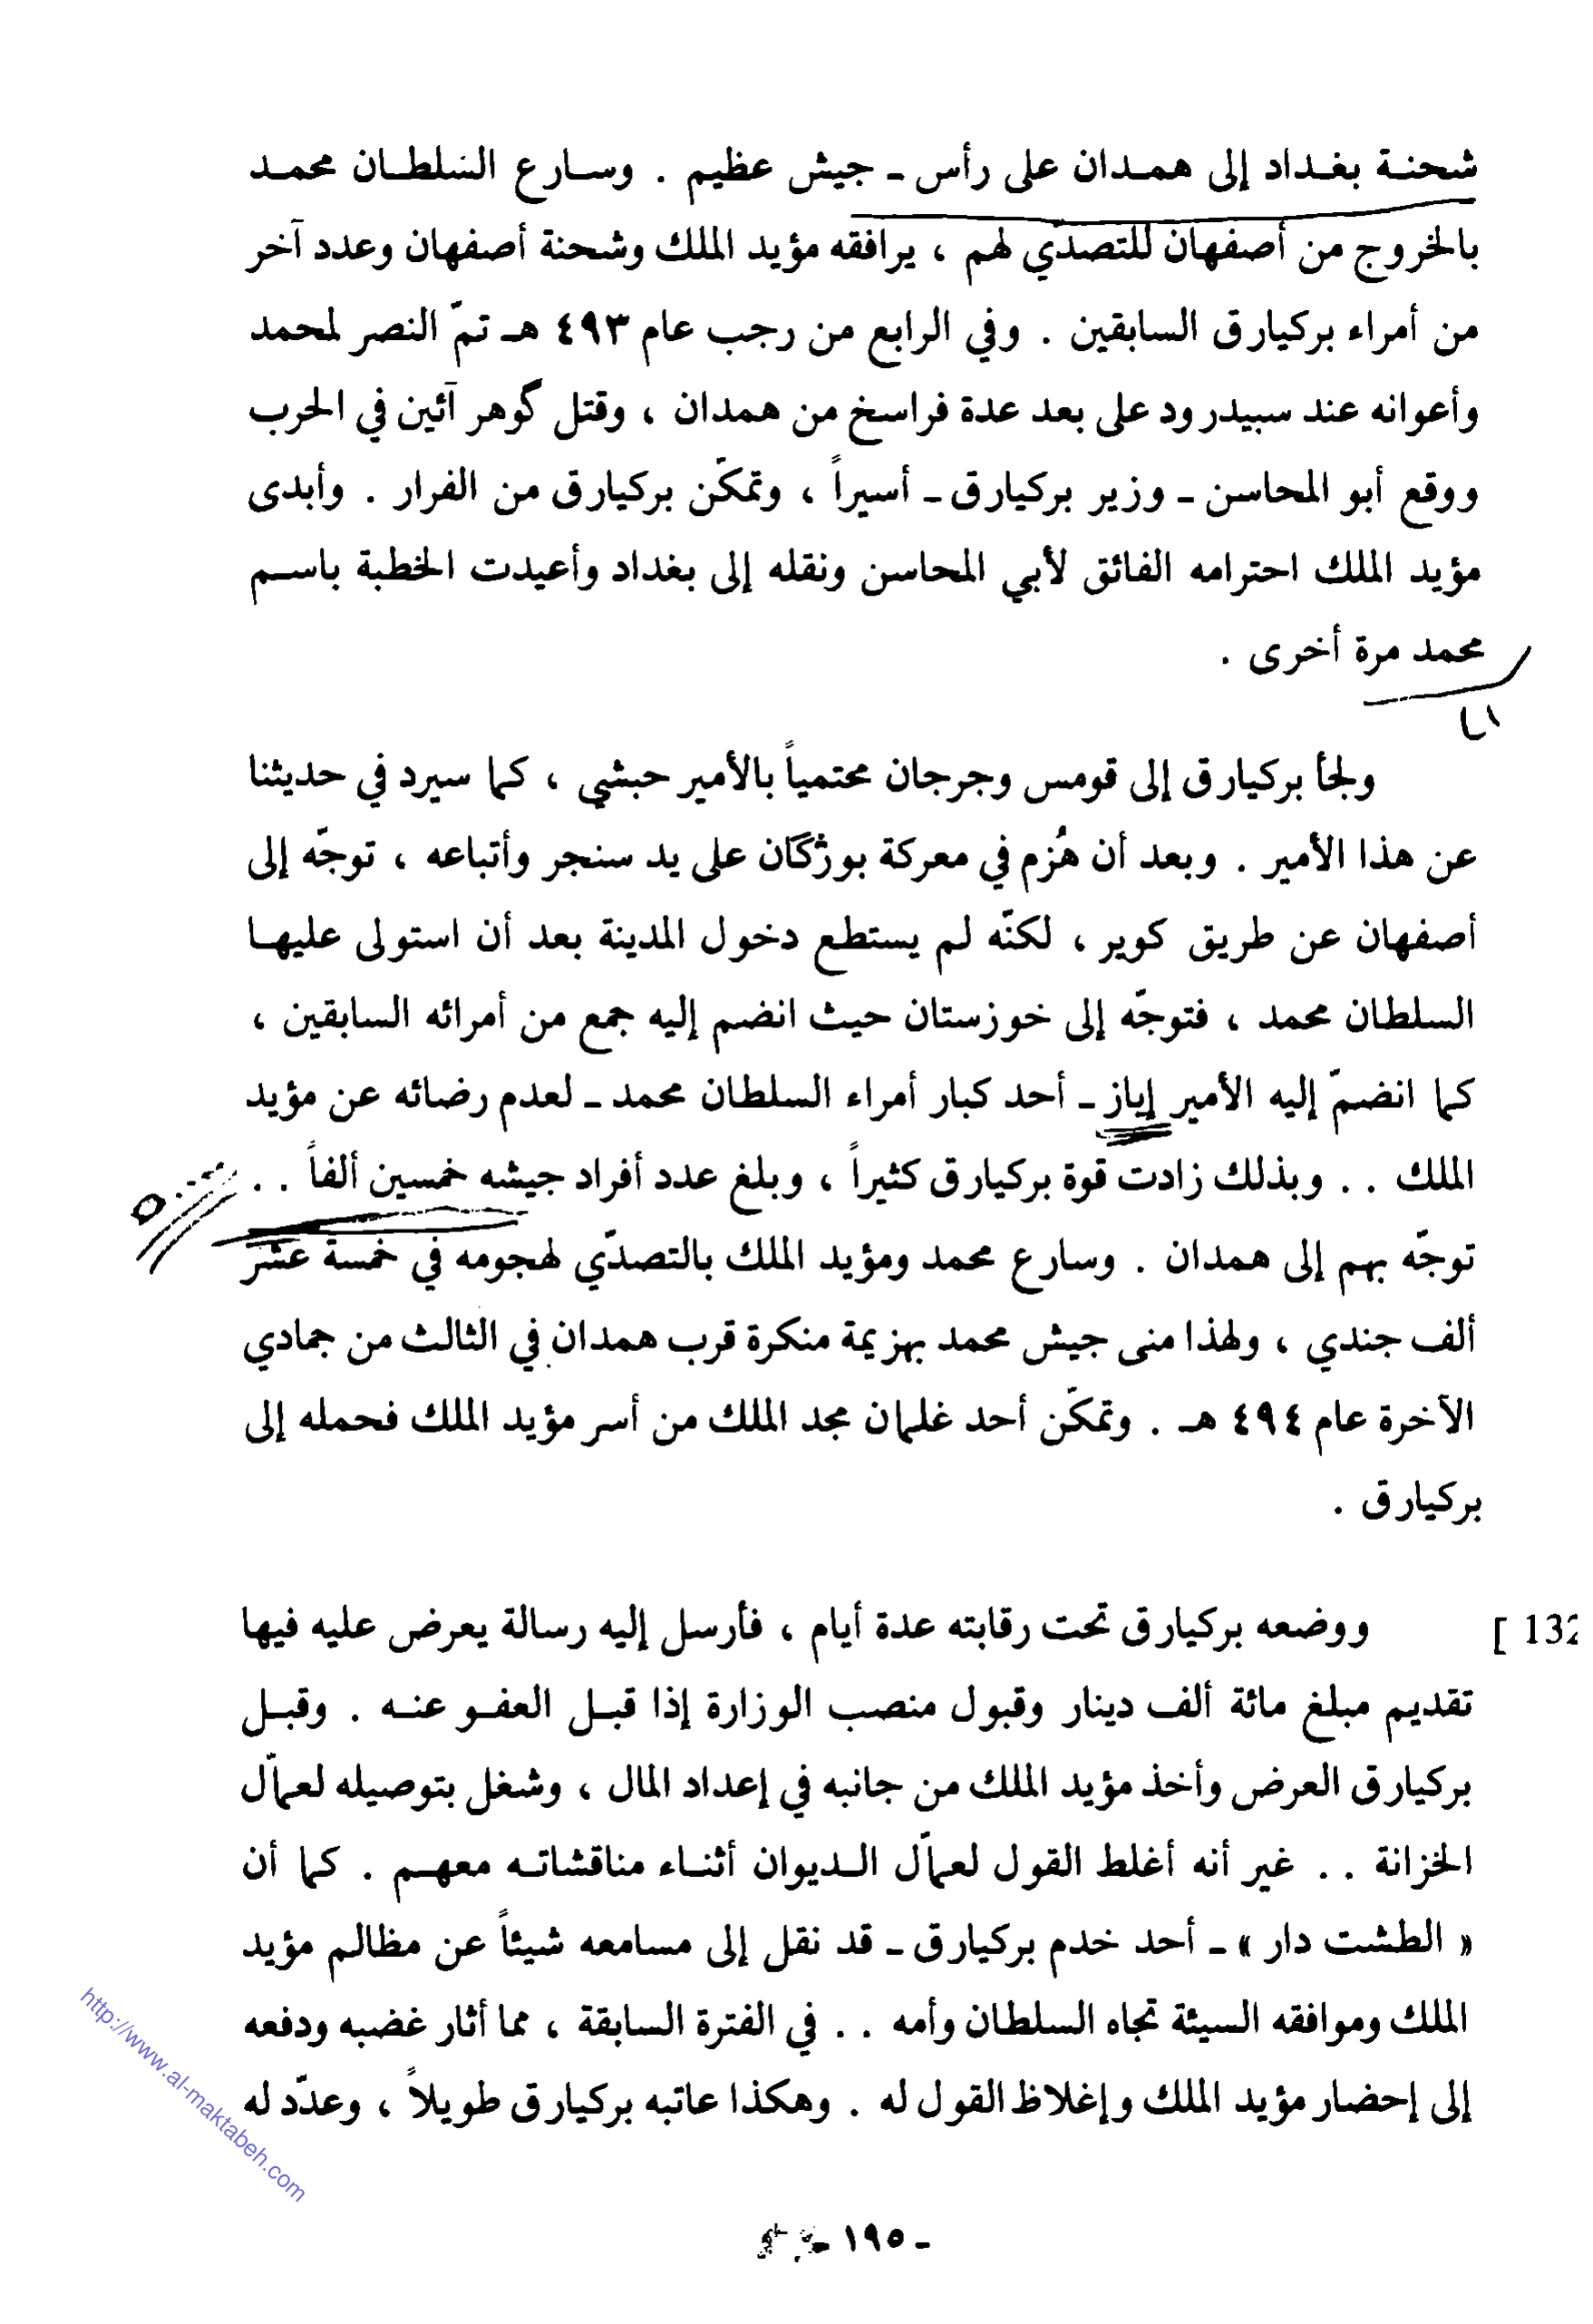 شحنة بغداد إلى همدان على رأس ـ جيش عظيم . وسارع السلطان محمد
بالخروج من أصفهان للتصدّي لهم ، يرافقه مؤيد الملك وشحنة أصفهان وعدد آخر
من أمراء بركيارق السابقين . وفي الرابع من رجب عام ٤٩٣ هـ تمّ النصر لمحمد
وأعوانه عند سبيدرود على بعد عدة فراسخ من همدان ، وقتل گوهر آئين في الحرب
ووقع أبو المحاسن ـ وزير بركيارق ـ أسيراً ، وتمكّن بركيارق من الفرار . وأبدى
مؤيد الملك احترامه الفائق لأبي المحاسن ونقله إلى بغداد وأعيدت الخطبة باسم
محمد مرة أخرى .
ولجأ بركيارق إلى قومس وجرجان محتمياً بالأمير حبشي ، كما سيرد في حديثنا
عن هذا الأمير . وبعد أن هُزم في معركة بوژگان على يد سنجر وأتباعه ، توجّه إلى
أصفهان عن طريق كوير ، لكنّه لم يستطع دخول المدينة بعد أن استولى عليها
السلطان محمد ، فتوجّه إلى خوزستان حيث انضم إليه جمع من أمرائه السابقين ،
كما انضمّ إليه الأمير إياز ـ أحد كبار أمراء السلطان محمد ـ لعدم رضائه عن مؤيد
الملك . . وبذلك زادت قوة بركيارق كثيراً ، وبلغ عدد أفراد جيشه خمسين ألفاً . .
توجّه بهم إلى همدان . وسارع محمد ومؤيد الملك بالتصدّي لهجومه في خمسة عشر
ألف جندي ، ولهذا منى جيش محمد بهزيمة منكرة قرب همدان في الثالث من جمادي
الآخرة عام ٤٩٤ هـ . وتمكّن أحد غلمان مجد الملك من أسر مؤيد الملك فحمله إلى
بركيارق .
[ 132 ووضعه بركيارق تحت رقابته عدة أيام ، فأرسل إليه رسالة يعرض عليه فيها
تقديم مبلغ مائة ألف دينار وقبول منصب الوزارة إذا قبل العفو عنه . وقبل
بركيارق العرض وأخذ مؤيد الملك من جانبه في إعداد المال ، وشغل بتوصيله لعمّال
الخزانة . . غير أنه أغلط القول لعمّال الديوان أثناء مناقشاته معهم . كما أن
« الطشت دار » ـ أحد خدم بركيارق ـ قد نقل إلى مسامعه شيئاً عن مظالم مؤيد
الملك وموافقه السيئة تجاه السلطان وأمه . . في الفترة السابقة ، مما أثار غضبه ودفعه
إلى إحضار مؤيد الملك وإغلاظ القول له . وهكذا عاتبه بركيارق طويلاً ، وعدّد له
http://www.al-maktabeh.com
ـ ١٩٥ ـ